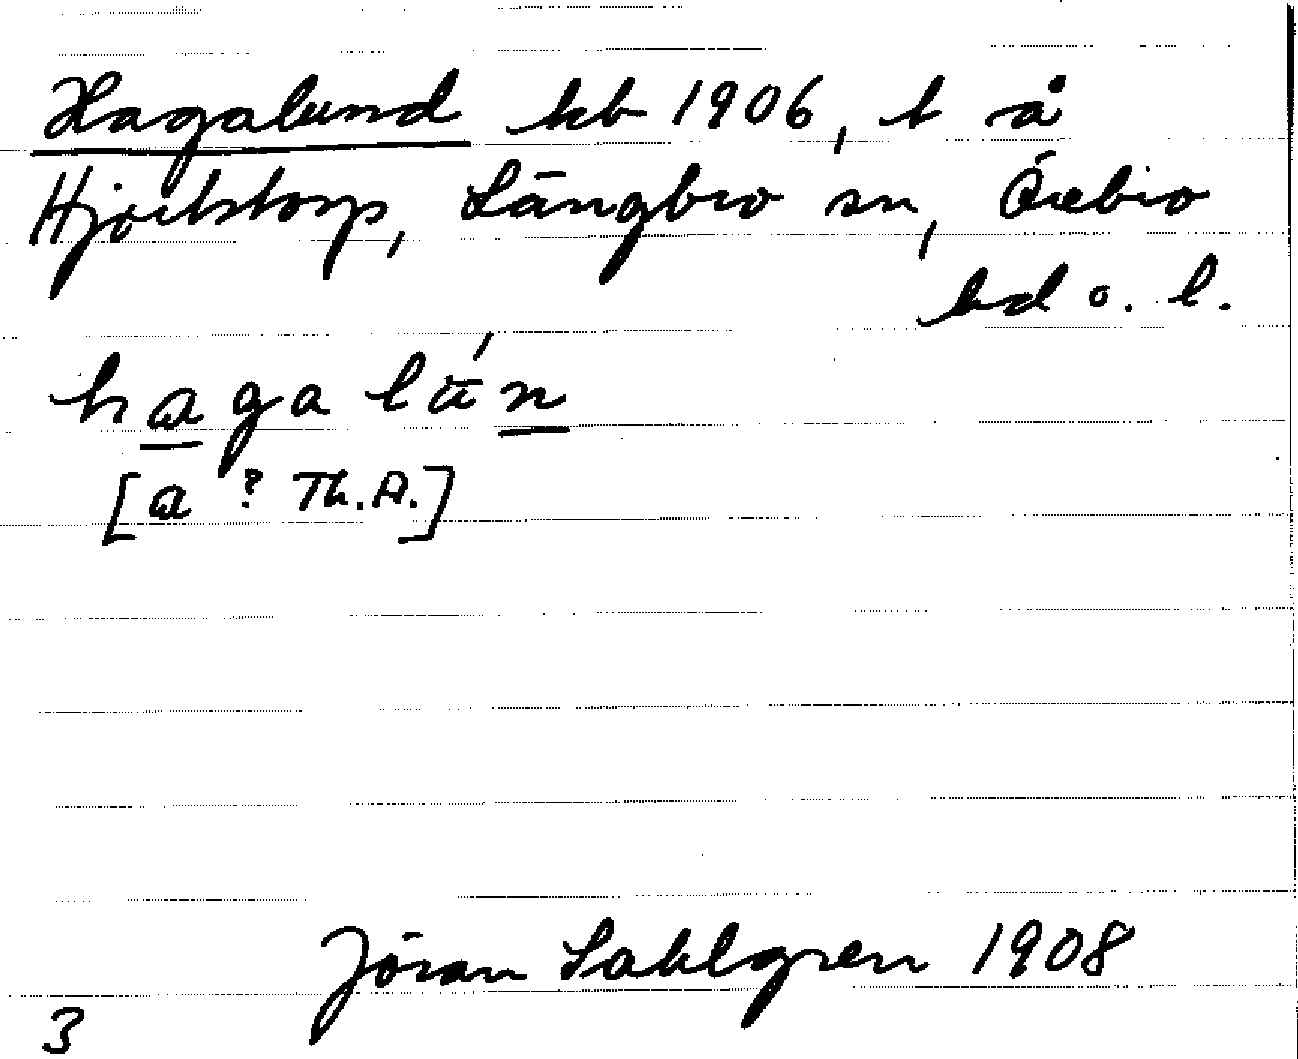 Hagalund kb 1906, t å
Hjortstorp, Längbro sn, Örebro
hd o. l.
hagalán
[a ? Th.A.]
Jöran Sahlgren 1908
3